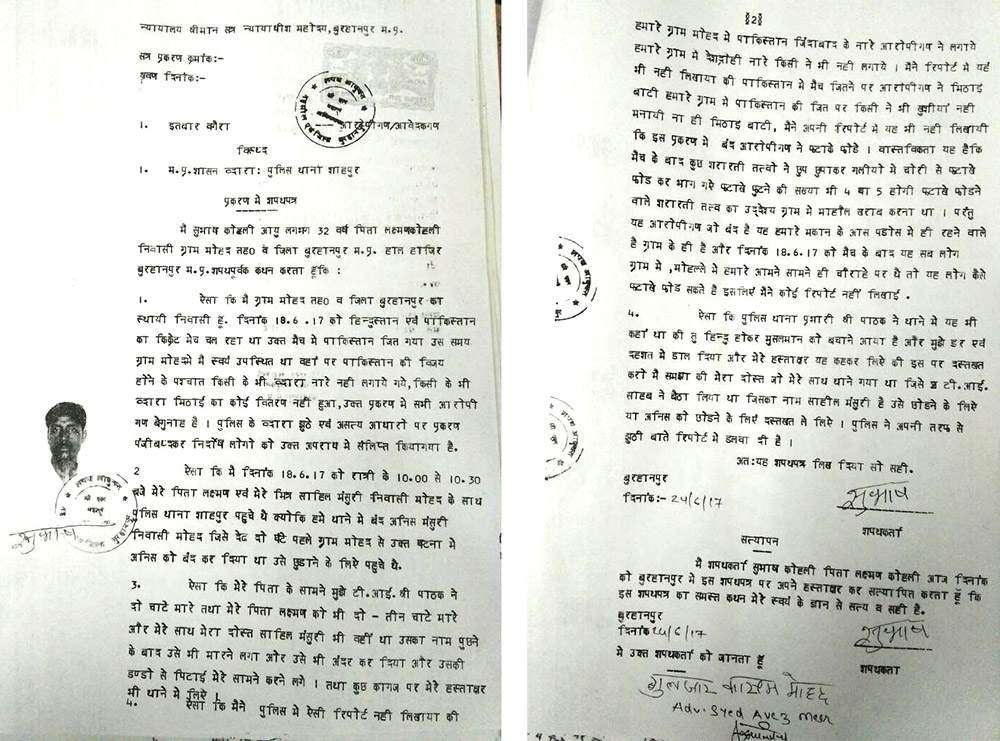 न्यायालय श्रीमान सत्र न्यायाधीश महोदय, बुरहानपुर म.प्र.
सत्र प्रकरण क्रमांक:-
श्रवण दिनांक:-
1. इतबार कौरा आरोपीगण/आवेदकगण
विरूध्द
1. म.प्र.शासन व्दारा: पुलिस थाना शाहपुर
प्रकरण मे शपथपत्र
मै सुभाष कोहली आयु लगभग 32 वर्ष पिता लक्ष्मणकोहली
निवासी ग्राम मोहद तह0 व जिला बुरहानपुर म.प्र. हाल हाजिर
बुरहानपुर म.प्र.शपथपूर्वक कथन करता हूंकि :
1. ऐसा कि मै ग्राम मोहद तह0 व जिला बुरहानपुर का
स्थायी निवासी हूं. दिनांक 18.6.17 को हिन्दुस्तान एवं पाकिस्तान
का क्रिकेट मेच चल रहा था उक्त मैच मे पाकिस्तान जित गया उस समय
ग्राम मोहदमे मै स्वयं उपस्थित था वहां पर पाकिस्तान की विजय
होने के पश्चात किसी के भी व्दारा नारे नही लगाये गये, किसी के भी
व्दारा मिठाई का कोई वितरण नही हुआ, उक्त प्रकरण मे सभी आरोपी
गण बेगुनाह है । पुलिस के व्दारा झुठे एवं असत्य आधारो पर प्रकरण
पंजीबध्दकर निर्दोष लोगो को उक्त अपराध मे संलिप्त कियागया है.
2 ऐसा कि मै दिनांक 18.6.17 को रात्री के 10.00 से 10.30
बजे मेरे पिता लक्ष्मण एवं मेरे मित्र साहिल मंसुरी निवासी मोहद के साथ
पुलिस थाना शाहपुर पहुचे थे क्योकि हमे थाने मे बंद अनिस मंसुरी
निवासी मोहद जिसे देढ दो घंटे पहले ग्राम मोहद से उक्त घटना मे
अनिस को बंद कर दिया था उसे छुडाने के लिऐ पहुचे थे.
3. ऐसा कि मेरे पिता के सामने मुझे टी.आई.श्री पाठक ने
दो चाटे मारे तथा मेरे पिता लक्ष्मण को भी दो - तीन चाटे मारे
और मेरे साथ मेरा दोस्त साहिल मंसुरी भी वहीं था उसका नाम पुछने
के बाद उसे भी मारने लगा ओर उसे भी अंदर कर दिया और उसकी
डण्डो से पिटाई मेरे सामने करने लगे । तथा कुछ कागज पर मेरे हस्ताक्षर
भी थाने मे लिऐ ।
4. ऐसा कि मैने पुलिस मे ऐसी रिपोर्ट नही लिखाया की
सुभाष
§2§
हमारे ग्राम मोहद मे पाकिस्तान जिंदाबाद के नारे आरोपीगण ने लगाये
हमारे ग्राम मे देशद्रोही नारे किसी ने भी नही लगाये । मैने रिपोर्ट मे यह
भी नही लिखाया की पाकिस्तान मे मैच जितने पर आरोपीगण ने मिठाई
बाटी हमारे ग्राम मे पाकिस्तान की जित पर किसी ने भी खुशीयां नही
मनायी ना ही मिठाई बाटी, मैने अपनी रिपोर्ट मे यह भी नही लिखायी
कि इस प्रकरण मे बंद आरोपीगण ने फटाके फोडे । वास्तविकता यह हैकि
मैच के बाद कुछ शरारती तत्वो ने छुप छुपाकर गलीयो मे चोरी से फटाके
फोड कर भाग गऐ फटाके फुटने की संख्या भी 4 या 5 होगी फटाके फोडने
वाले शरारती तत्व का उद्देश्य ग्राम मे माहौल खराब करना था । परंतु
यह आरोपीगण जो बंद है यह हमारे मकान के आस पडोस मे ही रहने वाले
है ग्राम के ही है और दिनांक 18.6.17 को मैच के बाद यह सब लोग
ग्राम मे ,मोहल्ले मे हमारे आमने सामने ही चौराहे पर थे तो यह लोग कैसे
फटाके फोड सकते है इसलिऐ मैने कोई रिपोर्ट नहीं लिखाई .
4. ऐसा कि पुलिस थाना प्रभारी श्री पाठक ने थाने मे यह भी
कहां था की तु हिन्दु होकर मुसलमान को बचाने आया है और मुझे डर एवं
दहशत मे डाल दिया और मेरे हस्ताक्षर यह कहकर लिऐ की इस पर दस्तखत
करो मै समझा की मेरा दोस्त जो मेरे साथ थाने गया था जिसे टी.आई.
साहब ने बैठा लिया था जिसका नाम साहील मंसुरी है उसे छोडने के लिऐ
या अनिस को छोडने के लिऐ दस्तखत ले लिऐ । पुलिस ने अपनी तरफ से
झुठी बाते रिपोर्ट मे डलवा दी है ।
अत:यह शपथपत्र लिख दिया सो सही.
बुरहानपुर
दिनांक:- 24/6/17
सुभाष
शपथकर्ता
सत्यापन
मै शपथकर्ता सुभाष कोहली पिता लक्ष्मण कोहली आज दिनांक
को बुरहानपुर मे इस शपथपत्र पर अपने हस्ताक्षर कर सत्यापित करता हूँ कि
इस शपथपत्र का समस्त कथन मेरे स्वयं के ज्ञान से सत्य व सही है.
बुरहानपुर
दिनांक 24/6/17
सुभाष
शपथकर्ता
मे उक्त शपथकर्ता को जानता हूँ
गुलजार कासम मोहद
Adv. Syed